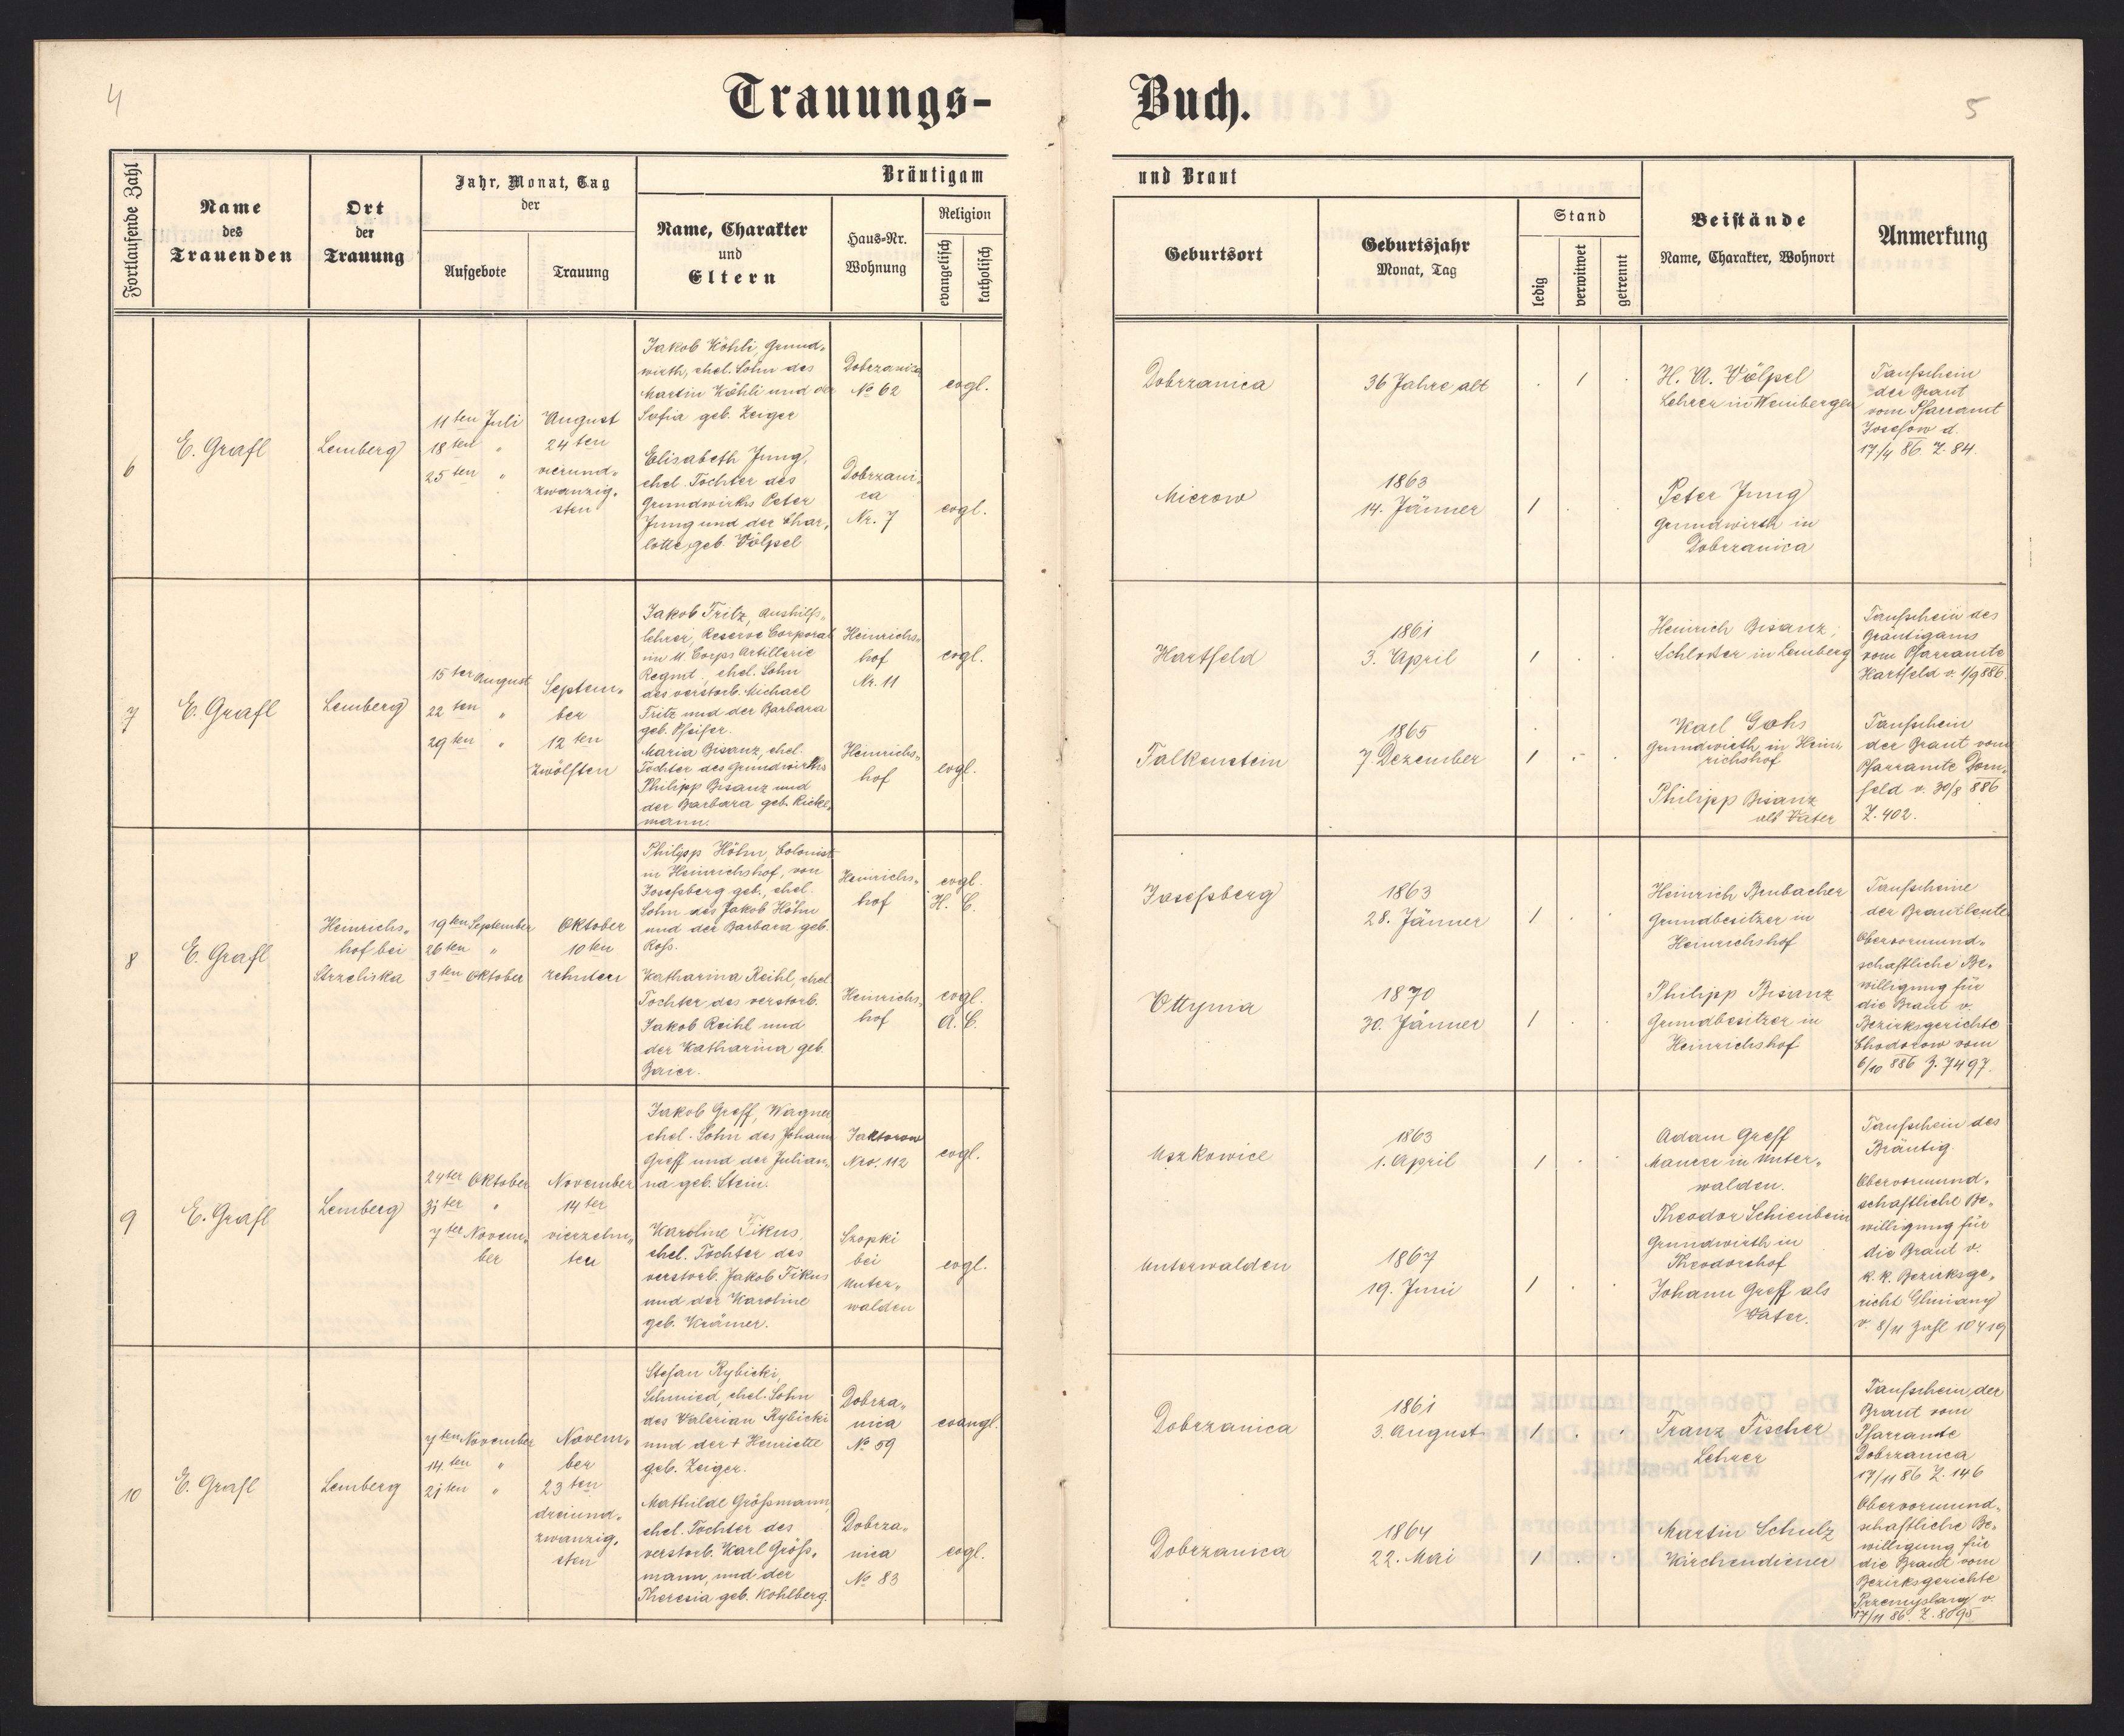 4
Trauungs-
Buch.
5
Fortlaufende Zahl
Name
des
Trauenden
Ort
der
Trauung
Jahr, Monat, Tag
der
Aufgebote
Trauung
Bräutigam
und Braut
Name, Charakter
und
Eltern
Haus-Nr.
Wohnung
Religion
evangelisch
katholisch
Geburtsort
Geburtsjahr
Monat, Tag
Stand
ledig
verwitwet
getrennt
Beistände
Name, Charakter, Wohnort
Anmerkung
6
E. Grafl
Lemberg
11ten Juli
18ten "
25ten "
August
24ten
vierund-
zwanzig-
sten
Jakob Köhli, Grund-
wirth, ehel. Sohn des
Martin Köhli und der
Sofia geb. Zeiger
Dobrzanica
No 62
evgl.
Dobrzanica
36 Jahre alt
. 1 .
H. A. Völpel
Lehrer in Weinbergen
Taufschein
der Braut
vom Pfarramt
Josefow d.
17/4 86. Z. 84.
Elisabeth Jung,
ehel. Tochter des
Grundwirths Peter
Jung und der Char-
lotte geb. Völpel
Dobrzani-
ca
Nr. 7
evgl.
Mierow
1863
14. Jänner
1 . .
Peter Jung
Grundwirth in
Dobrzanica
7
E. Grafl
Lemberg
15ter August
22ten "
29ten "
Septem-
ber
12ten
zwölften
Jakob Fritz, Aushilfs-
lehrer, Reserve Corporal
im 11 Corps Artillerie
Regmt., ehel. Sohn
des verstorb. Michael
Fritz und der Barbara
geb. Pfeifer.
Heinrichs-
hof
Nr. 11
evgl.
Hartfeld
1861
3. April
1 . .
Heinrich Bisanz,
Schlosser in Lemberg
Taufschein des
Bräutigams
vom Pfarramte
Hartfeld v. 1/9 886.
Maria Bisanz, ehel.
Tochter des Grundwirths
Philipp Bisanz und
der Barbara geb. Rickl-
mann.
Heinrichs-
hof
evgl.
Falkenstein
1865
7. Dezember
1 . .
Karl Gohs
Grundwirth in Hein-
richshof
Philipp Bisanz
als Vater
Taufschein
der Braut vom
Pfarramte Dorn-
feld v. 30/8 886
Z. 402.
8
E. Grafl
Heinrichs-
hof bei
Strzeliska
19ten September
26ten "
3ten Oktober
Oktober
10ten
zehnten
Philipp Höhn, Colonist
in Heinrichshof, von
Josefsberg geb., ehel.
Sohn des Jakob Höhn
und der Barbara geb.
Roß.
Heinrichs-
hof
evgl.
H. C.
Josefsberg
1863
28. Jänner
1 . .
Heinrich Brubacher
Grundbesitzer in
Heinrichshof
Taufscheine
der Brautleute
Obervormund-
schaftliche Be-
willigung für
die Braut v.
Bezirksgerichte
Chodorow vom
6/10 886 Z. 7497.
Katharina Reihl, ehel.
Tochter des verstorb.
Jakob Reihl und
der Katharina geb.
Baier.
Heinrichs-
hof
evgl.
A. C.
Ottynia
1870
30. Jänner
1 . .
Philipp Bisanz
Grundbesitzer in
Heinrichshof
9
E. Grafl
Lemberg
24ter Oktober
31ter "
7ter Novem-
ber
November
14ter
vierzehn-
ten
Jakob Greff, Wagner,
ehel. Sohn des Johann
Greff und der Julian-
na geb. Stein.
Jaktorow
Nro. 112
evgl.
Uszkowice
1863
1. April
1 . .
Adam Greff
Maurer in Unter-
walden.
Taufschein des
Bräutig.
Obervormund-
schaftliche Be-
willigung für
die Braut v.
k. k. Bezirksge-
richt Gliniany
v. 8/11 Zahl 10419
Karoline Fikus,
ehel. Tochter des
verstorb. Jakob Fikus
und der Karoline
geb. Krämer.
Szopki
bei
Unter-
walden
evgl.
Unterwalden
1867
19. Juni
1 . .
Theodor Schienbein
Grundwirth in
Theodorshof
Johann Greff als
Vater.
10
E. Grafl
Lemberg
7ten November
14ten "
21ten "
Novem-
ber
23ten
dreiund-
zwanzig-
sten
Stefan Rybicki,
Schmied, ehel. Sohn
des Valerian Rybicki
und der + Henriette
geb. Zeiger.
Dobrza-
nica
No 59
evangl.
Dobrzanica
1861
3. August
1 . .
Franz Fischer
Lehrer
Taufschein der
Braut vom
Pfarramte
Dobrzanica
17/11 86 Z. 146
Obervormund-
schaftliche Be-
willigung für
die Braut vom
Bezirksgerichte
Przemyslany v.
17/11 86. Z. 8095
Mathilde Größmann,
ehel. Tochter des
verstorb. Karl Größ-
mann, und der
Theresia geb. Kohlberg.
Dobrza-
nica
No 83
evgl.
Dobrzanica
1864
22. Mai
1 . .
Martin Schulz
Kirchendiener